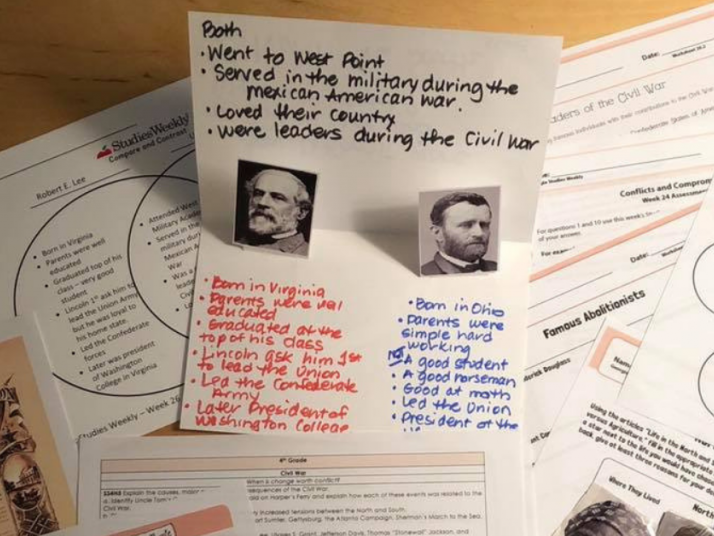 Both
• Went to West Point
• Served in the military during the
mexican American war.
• Loved their country
• were leaders during the Civil War
• Born in Virginia
• Parents were
educated
• Graduated at the
top of his class
• Lincoln ask him 1st
to lead the Union
• Led the Confederate
Army
• Later President of
Washington College
• Born in Ohio
• Parents were
simple hard
working
• NOT A good student
• A good horseman
• Good at math
• Led the Union
• President of the
StudiesWeekly
Compare and Contrast
Robert E. Lee
• Born in Virginia
• Parents were well
educated
• Graduated top of his
class – very good
student
• Lincoln 1st ask him to
lead the Union Army
but he was loyal to
his home state.
• Led the Confederate
forces
• Later was president
of Washington
College in Virginia
Attended West
Military
Served in the
military
Mexican
War
Was a
Studies Weekly – Week 26
4th Grade
Civil War
When is change worth conflict?
SS4H5 Explain the causes, major
a. Identify Uncle Tom's
Civil War.
consequences of the
raid on Harper's Ferry and explain how each of these events was related to the
increased tensions between the North and South.
Fort Sumter, Gettysburg, the Atlanta Campaign, Sherman's March to the Sea,
Grant, Jefferson Davis, Thomas "Stonewall" Jackson, and
Date:
Leaders of the Civil War
individuals with their contributions to the Civil War
Confederate States of
Studies Weekly
Conflicts and
Week 24
For questions 1 and 10 use this week's
of your answer.
Date:
Famous Abolitionists
Frederick Douglass
Name
Using the articles "Life in the North and
versus Agriculture," fill in the appropriate
a star next to the life you would have
back, give at least three reasons for your
Where They Lived
North